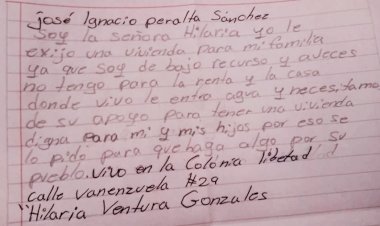 josé Ignacio peralta Sánchez
Soy la señora Hilaria yo le
exijo una vivienda para mi familia
ya que soy de bajo recurso y aveces
no tengo para la renta y la casa
donde vivo le entra agua y necesitamo
de su apoyo para tener una vivienda
digna para mi y mis hijos por eso se
lo pido para que haga algo por su
pueblo. vivo en la Colonia libetad
calle vanenzuela #29
"Hilaria Ventura Gonzales